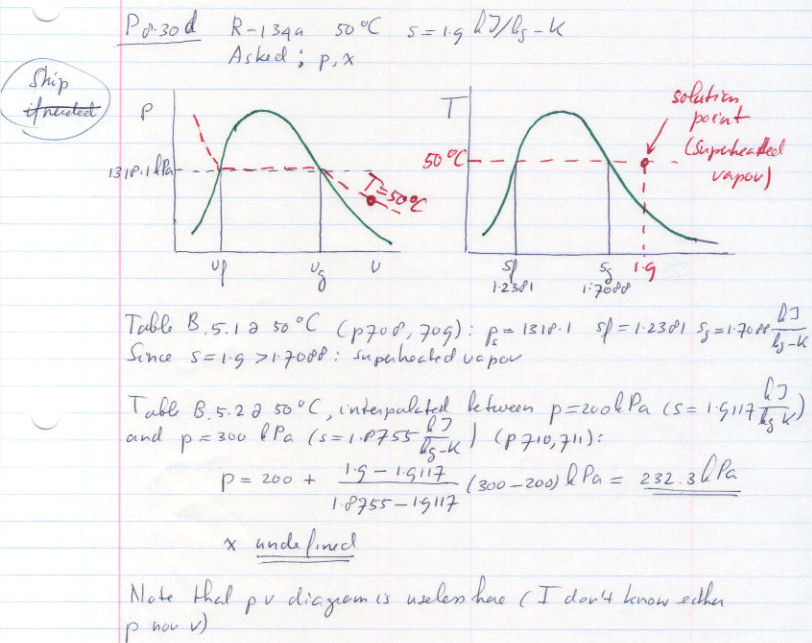 P8.30d R-134a 50°C s=1.9 kJ/kg-K
Asked: p,x
Skip
if needed
P
1318.1 kPa
T=50°C
vf
vg
v
T
50°C
solution
point
(superheated
vapor)
sf
1.2381
sg
1.7088
1.9
Table B.5.1 @ 50°C (p708, 709): ps= 1318.1 sf=1.2381 sg=1.7088 kJ/kg-K
Since s=1.9 >1.7088: superheated vapor
Table B.5.2 @ 50°C, interpolated between p=200kPa (s=1.9117 kJ/kg K)
and p=300 kPa (s=1.8755 kJ/kg-K) (p710,711):
p = 200 + (1.9 - 1.9117)/(1.8755-1.9117) (300-200) kPa = 232.3 kPa
x undefined
Note that pv diagram is useless here (I don't know either
p nor v)